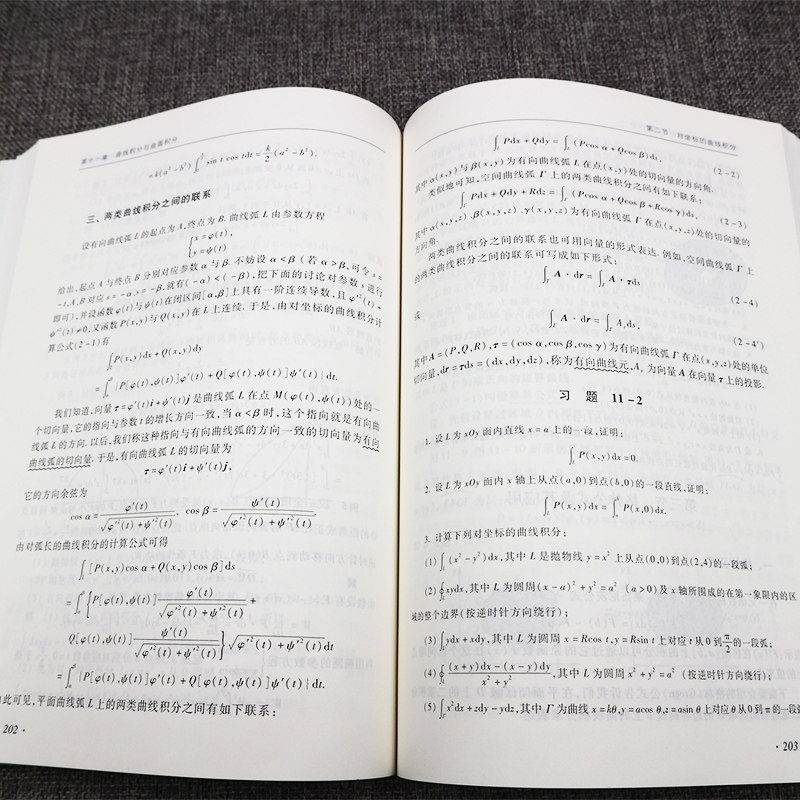 第十一章 曲线积分与曲面积分
= k(a² - b²) ∫₀^{π/2} sin t cos tdt = k/2 (a² - b²).
三、两类曲线积分之间的联系
设有向曲线弧 L 的起点为 A, 终点为 B. 曲线弧 L 由参数方程
{ x = φ(t),
y = ψ(t)
给出, 起点 A 与终点 B 分别对应参数 α 与 β. 不妨设 α < β (若 α > β, 可令 s =
-t, A, B 对应 s = -α, s = -β, 就有 (-α) < (-β), 把下面的讨论对参数 s 进行
即可), 并设函数 φ(t) 与 ψ(t) 在闭区间 [α, β] 上具有一阶连续导数, 且 φ'²(t) +
ψ'²(t) ≠ 0, 又函数 P(x,y) 与 Q(x,y) 在 L 上连续. 于是, 由对坐标的曲线积分计
算公式 (2-1) 有
∫_L P(x,y)dx + Q(x,y)dy
= ∫_α^β {P[φ(t),ψ(t)]φ'(t) + Q[φ(t),ψ(t)]ψ'(t)} dt.
我们知道, 向量 τ = φ'(t)i + ψ'(t)j 是曲线弧 L 在点 M(φ(t),ψ(t)) 处的一
个切向量, 它的指向与参数 t 的增长方向一致, 当 α < β 时, 这个指向就是有向曲
线弧 L 的方向. 以后, 我们称这种指向与有向曲线弧的方向一致的切向量为有向
曲线弧的切向量. 于是, 有向曲线弧 L 的切向量为
τ = φ'(t)i + ψ'(t)j,
它的方向余弦为
cos α = φ'(t)/√(φ'²(t) + ψ'²(t)), cos β = ψ'(t)/√(φ'²(t) + ψ'²(t)).
由对弧长的曲线积分的计算公式可得
∫_L [P(x,y)cos α + Q(x,y)cos β]ds
= ∫_α^β {P[φ(t),ψ(t)] φ'(t)/√(φ'²(t) + ψ'²(t)) +
Q[φ(t),ψ(t)] ψ'(t)/√(φ'²(t) + ψ'²(t))} √(φ'²(t) + ψ'²(t)) dt
= ∫_α^β {P[φ(t),ψ(t)]φ'(t) + Q[φ(t),ψ(t)]ψ'(t)} dt.
此可见, 平面曲线弧 L 上的两类曲线积分之间有如下联系:
202 ·
第二节 对坐标的曲线积分
∫_L Pdx + Qdy = ∫_L (Pcos α + Qcos β)ds, (2-2)
其中 α(x,y) 与 β(x,y) 为有向曲线弧 L 在点 (x,y) 处的切向量的方向角.
类似地可知, 空间曲线弧 Γ 上的两类曲线积分之间有如下联系:
∫_Γ Pdx + Qdy + Rdz = ∫_Γ (Pcos α + Qcos β + Rcos γ)ds, (2-3)
其中 α(x,y,z), β(x,y,z), γ(x,y,z) 为有向曲线弧 Γ 在点 (x,y,z) 处的切向量的
方向角.
两类曲线积分之间的联系也可用向量的形式表达. 例如, 空间曲线弧 Γ 上
的两类曲线积分之间的联系可写成如下形式:
∫_Γ A · dr = ∫_Γ A · τds (2-4)
或
∫_Γ A · dr = ∫_Γ A_τ ds, (2-4')
其中 A = (P,Q,R), τ = (cos α, cos β, cos γ) 为有向曲线弧 Γ 在点 (x,y,z) 处的单位
切向量, dr = τds = (dx,dy,dz), 称为有向曲线元, A_τ 为向量 A 在向量 τ 上的投影.
习 题 11-2
1. 设 L 为 xOy 面内直线 x = a 上的一段, 证明:
∫_L P(x,y)dx = 0.
2. 设 L 为 xOy 面内 x 轴上从点 (a,0) 到点 (b,0) 的一段直线, 证明:
∫_L P(x,y)dx = ∫_a^b P(x,0)dx.
3. 计算下列对坐标的曲线积分:
(1) ∫_L (x² - y²)dx, 其中 L 是抛物线 y = x² 上从点 (0,0) 到点 (2,4) 的一段弧;
(2) ∮_L xydx, 其中 L 为圆周 (x - a)² + y² = a² (a > 0) 及 x 轴所围成的在第一象限内的区
域的整个边界 (按逆时针方向绕行);
(3) ∫_L ydx + xdy, 其中 L 为圆周 x = Rcos t, y = Rsin t 上对应 t 从 0 到 π/2 的一段弧;
(4) ∮_L ((x + y)dx - (x - y)dy)/(x² + y²), 其中 L 为圆周 x² + y² = a² (按逆时针方向绕行);
(5) ∫_Γ x²dx + zdy - ydz, 其中 Γ 为曲线 x = kθ, y = acos θ, z = asin θ 上对应 θ 从 0 到 π 的一段弧
· 203